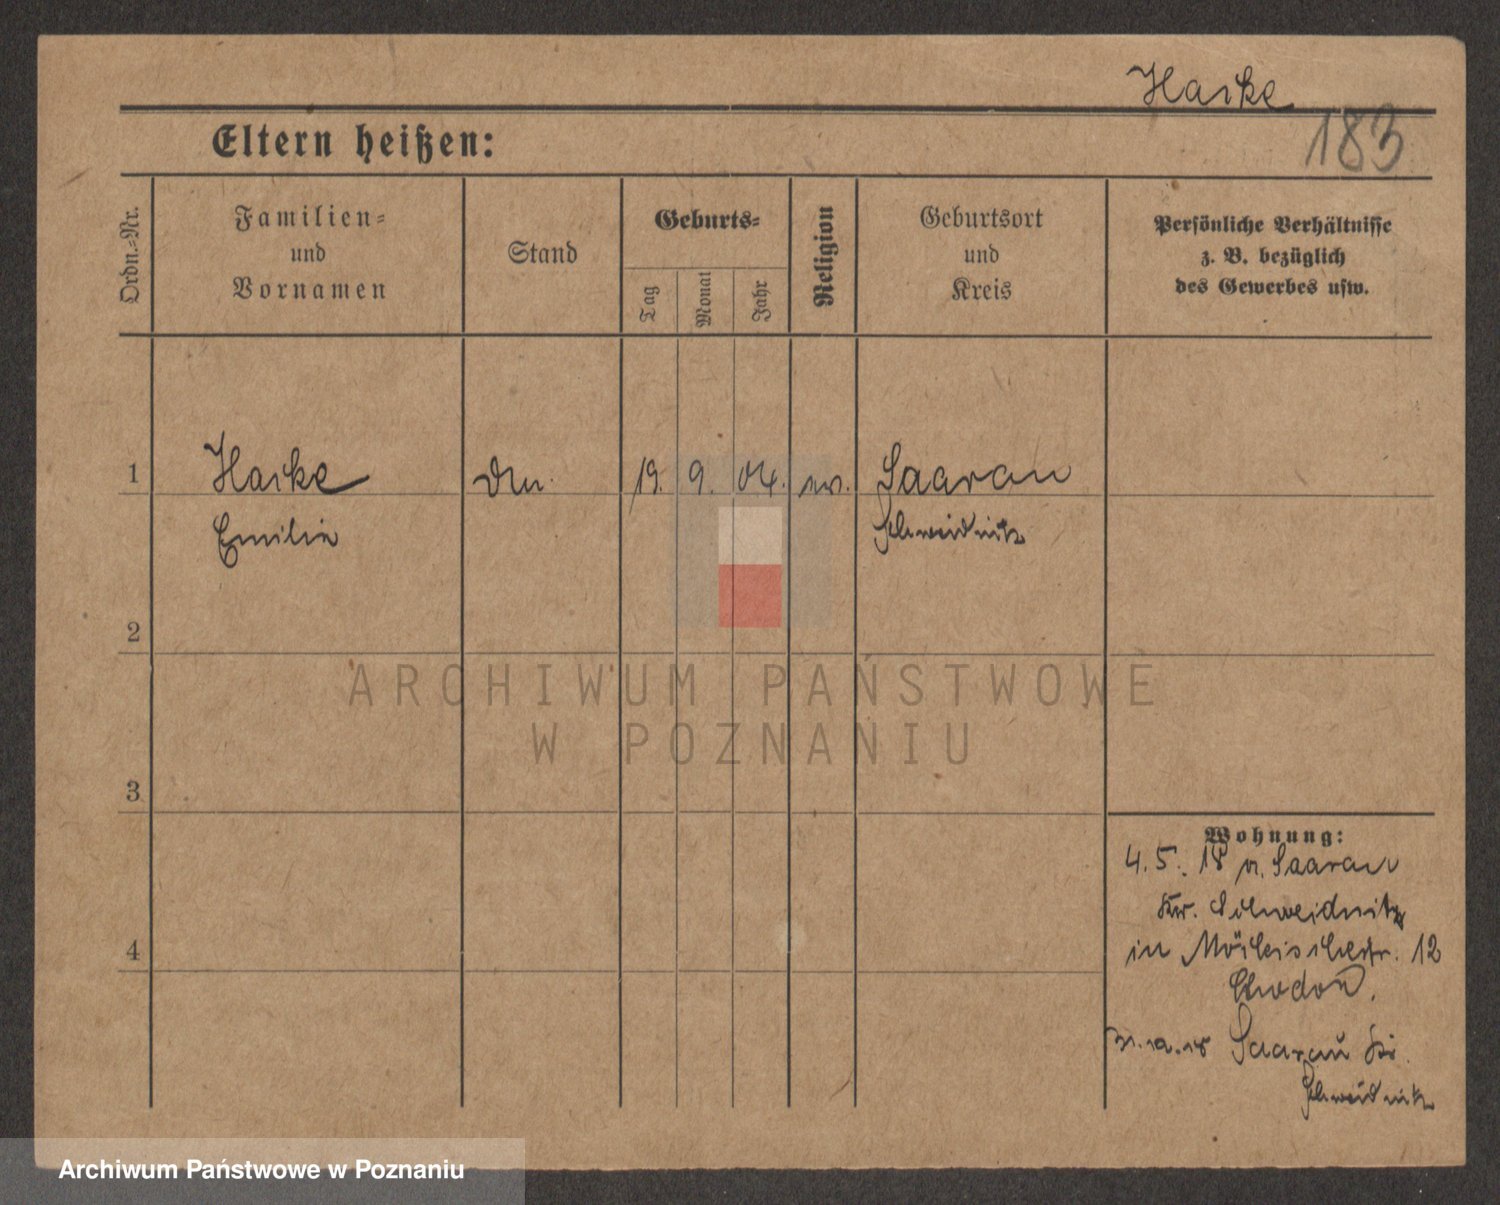 Haske
183
Eltern heißen:
Ordn.-Nr.
Familien-
und
Vornamen
Stand
Geburts-
Tag
Monat
Jahr
Religion
Geburtsort
und
Kreis
Persönliche Verhältnisse
z. B. bezüglich
des Gewerbes usw.
1
Haske
19. 9. 04. ev.
Saarau
Emilie
Schweidnitz
2
ARCHIWUM PAŃSTWOWE
W POZNANIU
3
Wohnung:
4. 5. 18 v. Saarau
Kr. Schweidnitz
in 12
4
Saarau Kr.
Schweidnitz
Archiwum Państwowe w Poznaniu